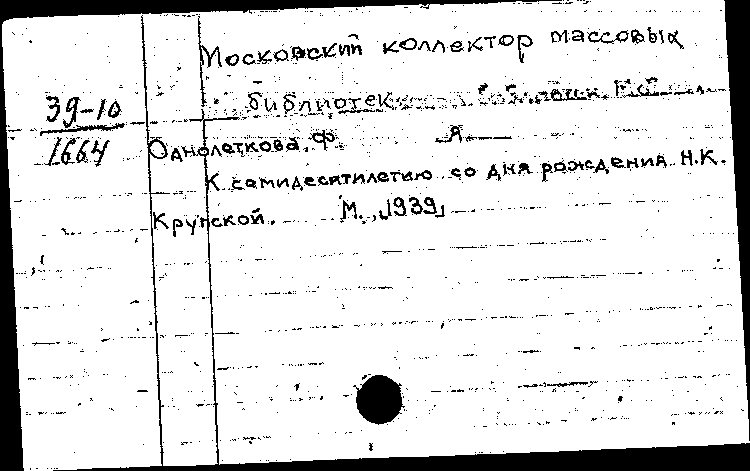 Московский коллектор массовых
39-10 библиотек
1664 Однолеткова, Ф. Я.
К семидесятилетию со дня рождения Н.К.
Крупской. М., 1939,